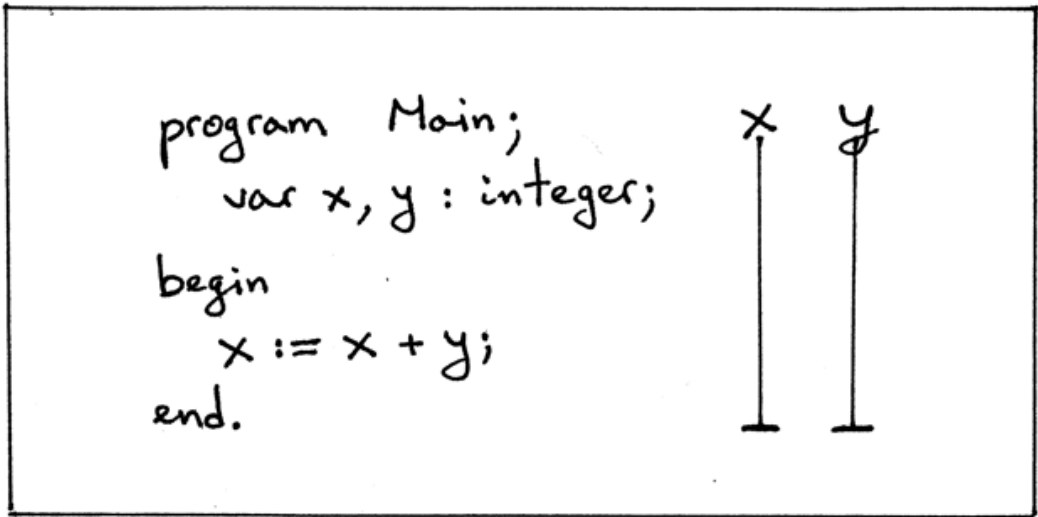 program Main;
var x, y : integer;
begin
x := x + y;
end.
x y